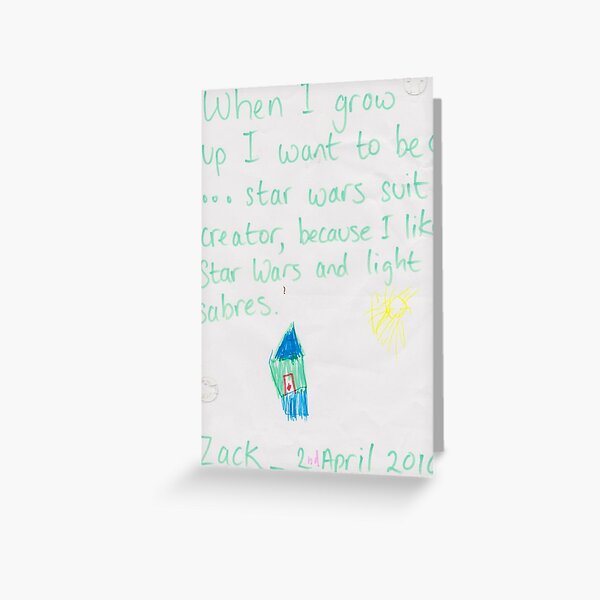 When I grow
up I want to be
... star wars suit
creator, because I lik
Star Wars and light
sabres.
Zack _ 2nd April 201